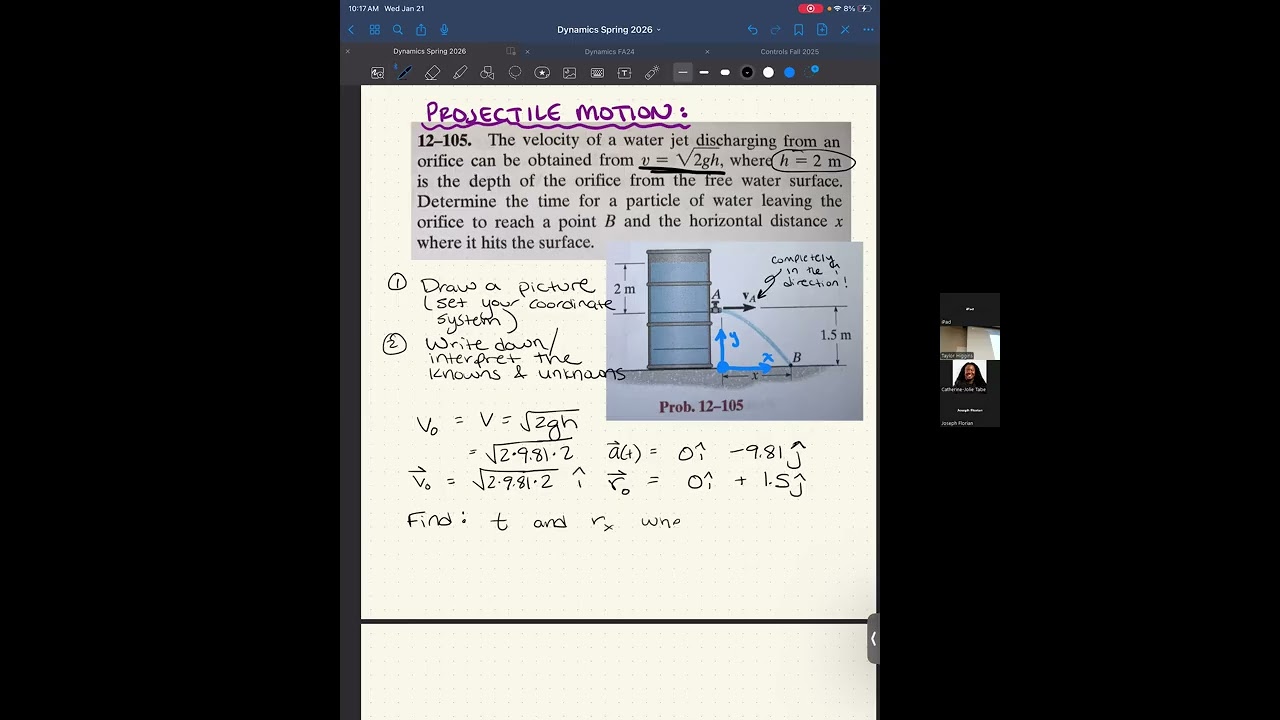 10:17 AM Wed Jan 21
8%
Dynamics Spring 2026
Dynamics Spring 2026
Dynamics FA24
Controls Fall 2025
PROJECTILE MOTION:
12–105. The velocity of a water jet discharging from an
orifice can be obtained from v = √2gh, where h = 2 m
is the depth of the orifice from the free water surface.
Determine the time for a particle of water leaving the
orifice to reach a point B and the horizontal distance x
where it hits the surface.
① Draw a picture
(set your coordinate
system)
② Write down/
interpret the
knowns & unknowns
completely
in the î
direction!
2 m
A
v_A
1.5 m
y
x
B
x
Prob. 12–105
V₀ = V = √2gh
= √2·9.81·2
a⃗(t) = 0î -9.81ĵ
v⃗₀ = √2·9.81·2 î
r⃗₀ = 0î + 1.5ĵ
Find: t and rₓ whe
iPad
iPad
Taylor Higgins
Catherine-Jolie Taba
Joseph Florian
Joseph Florian